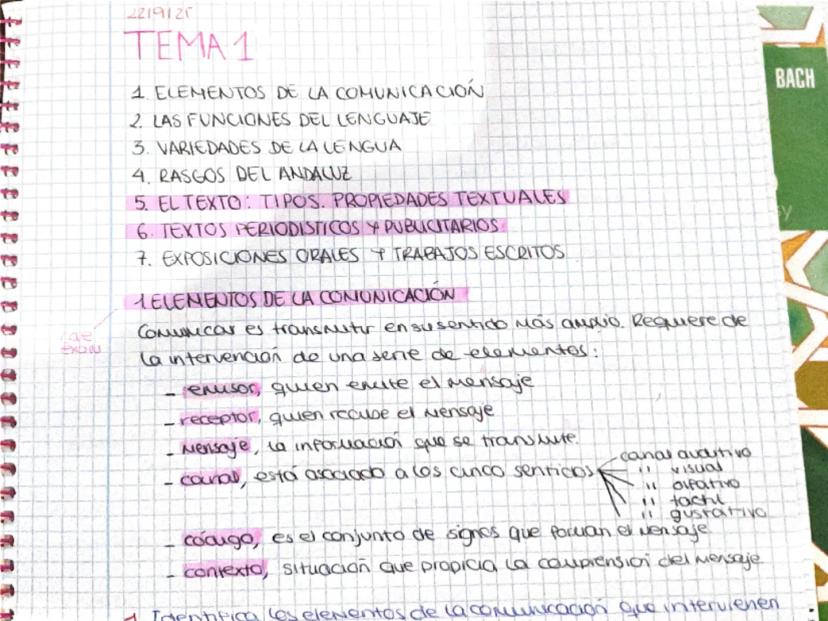 22/9/25
TEMA 1
1. ELEMENTOS DE LA COMUNICACIÓN
2. LAS FUNCIONES DEL LENGUAJE
3. VARIEDADES DE LA LENGUA
4. RASGOS DEL ANDALUZ
5. EL TEXTO: TIPOS. PROPIEDADES TEXTUALES
6. TEXTOS PERIODISTICOS Y PUBLICITARIOS
7. EXPOSICIONES ORALES Y TRABAJOS ESCRITOS
1. ELEMENTOS DE LA COMUNICACIÓN
Comunicar es transmitir en su sentido más amplio. Requiere de
la intervención de una serie de elementos:
- emisor, quien emite el mensaje
- receptor, quien recibe el mensaje
- mensaje, la información que se transmite.
- canal, está asociado a los cinco sentidos
canal auditivo
" visual
" olfativo
" tactil
" gustativo
- código, es el conjunto de signos que forman el mensaje
- contexto, situación que propicia la comprensión del mensaje
1 Identifica los elementos de la comunicación que intervienen
BACH